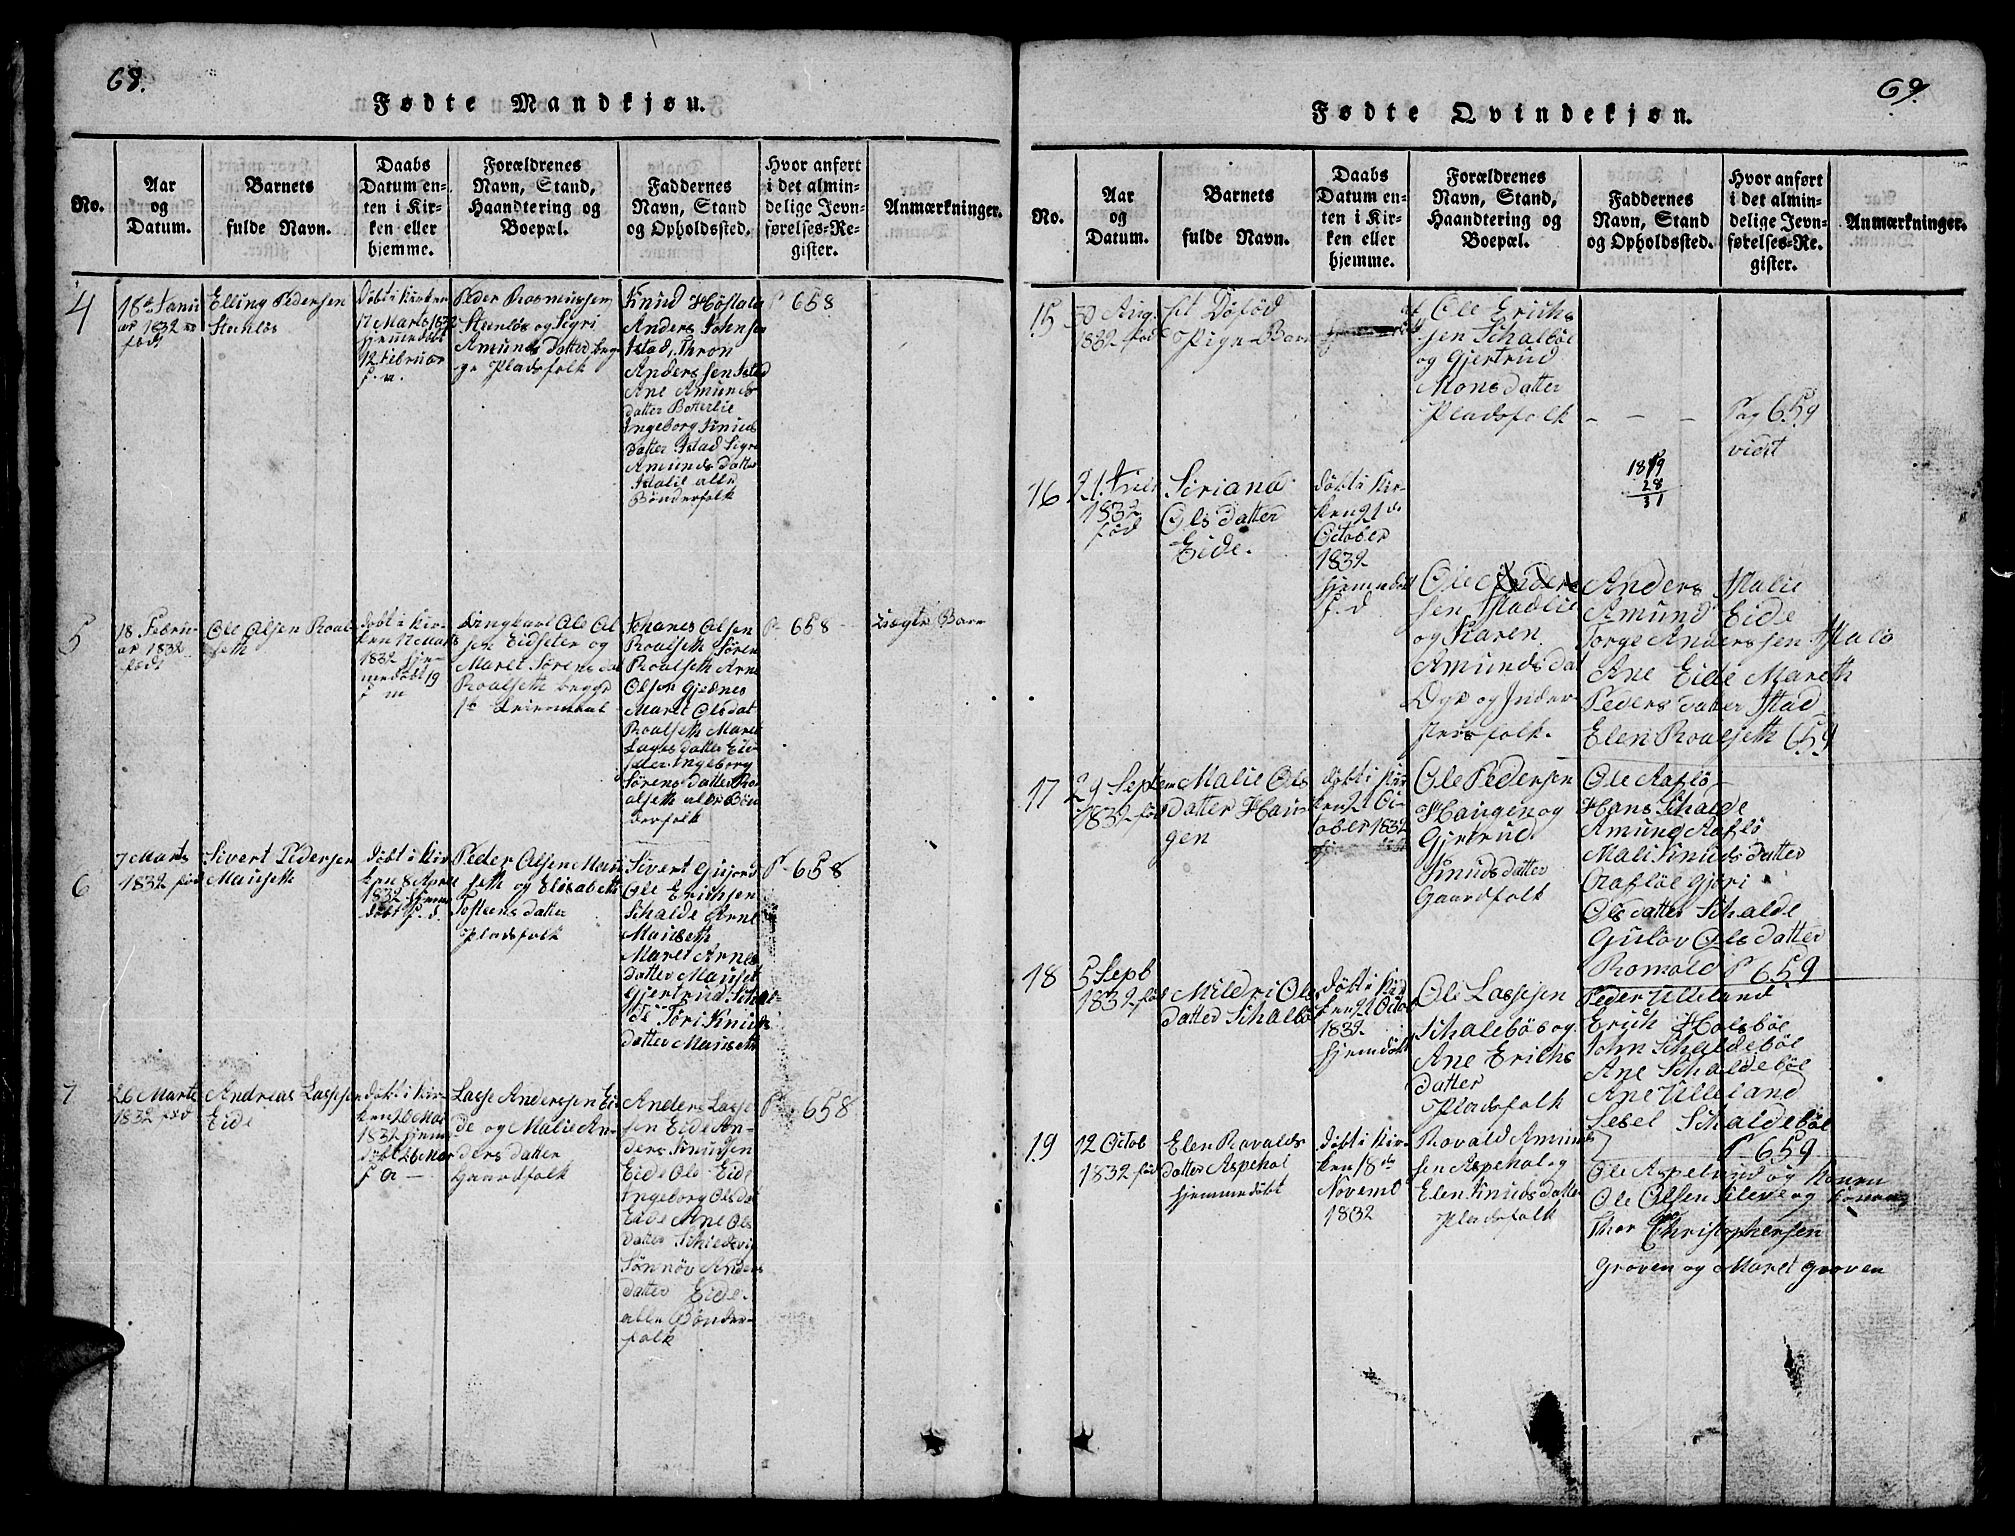 68.
Fødte Mandkjøn.
No.
Aar
og
Datum.
Barnets
fulde Navn.
Daabs
Datum en-
ten i Kir-
ken eller
hjemme.
Forældrenes
Navn, Stand,
Haandtering og
Boepæl.
Faddernes
Navn, Stand
og Opholdssted.
Hvor anført
i det almin-
delige Jevn-
førelses-Re-
gister.
Anmærkninger.
4
18de Janu
ar 1832
født
Elling Pedersen
Steenløs
Døbt i Kirken
17 Marts 1832
hjemedøbt
12 Februar
Peder Rasmussen
Steenløs og Sigri
Amunds Datter beg-
ge Pladsfolk
Knud
Anders Johnsen
Istad, Thron
Anderssen Istad
Ane Amunds
datter Botterlie
Ingeborg Knuds
Datter Istad Sigri
Amunds datter
Istalie alle
Bønderfolk
P 658
5
18 Febru
ar 1832
født
Ole Olsen Roal-
seth
døbt i Kir-
ken 17 Marts
1832 hje-
medøbt 19
Ungkarl Ole Ol
sen Eidseter og
Maret Sørensdat
Roalseth begge
1te Leiermaal
Johanes Olsen
Roalseth Søren
Roalseth Arne
Olsen Gjednes
Maret Olsdat
Roalseth Maret
datter Eid-
seter Ingeborg
Sørens datter Ro
alseth alle Bøn
derfolk
P- 658 -
Uægte Barn
6
7 Marts
1832 fød
Sivert Pedersen
Mauseth
døbt i Kir
ken 8 April
1832 hjem
døbt f. d.
Peder Olsen Mau
seth og Elisabeth
Tosteens datter
Pladsfolk
Sivert Gujord
Ole Erichsen
Schalde Arne
Mauseth
Maret Arnes
datter Mauset
Gjertrud Schal
de Tøri Knuds
datter Mauseth
P- 658
7
26 Marts
1832 fød
Andreas Lassesen
Eide
døbt i Kir-
ken 26 Mar
1832 hjem
døbt 26 Mar
Lasse Anderssen Ei
de og Malie An
ders datter
Gaardfolk
Anders Lasse
sen Eide An-
ders Knudsen
Eide Ole Eide
Ingeborg Olsda
Eide Ane Ols
datter
Sønnøv Anders
datter Eide.
alle Bønder-
folk
P- 658
69.
Fødte Qvindekjøn.
No.
Aar
og
Datum.
Barnets
fulde Navn.
Daabs
Datum en-
ten i Kir-
ken eller
hjemme.
Forældrenes
Navn, Stand,
Haandtering og
Boepæl.
Faddernes
Navn, Stand
og Opholdssted.
Hvor anført
i det almin-
delige Jevn-
førelses-Re-
gister.
Anmærkninger.
15
30 Aug.
1832 fød
et Døfød
Pige-Barn
af Ole Erich-
sen Schalbøe
og Gjertrud
Monsdatter
Pladsfolk
- - -
Pag 659
vidst
1819
28
31
16
21. Juli
1832
fød
Siriana
Ols datter
Eide.
døbt i Kir-
ken 21 de
October
1832
hjemmedøbt
f. d
Ole Ander
sen Stadlie
og Karen
Amunds dat
Dye og Inder-
Anders Malie
Amund Eide
Torge Anderssen Malie
Ane Eide Mareth
Peders datter Stad
Elen Roalseth 659
17
29 Septem
1832 fød
Malie Ols
datter Hau-
gen
døbt i Kir
ken 21 Oc-
tober 1832
Ole Pedersen
Haugen og
Gjertrud
Knuds datter
Gaardfolk
Ole Aaflø
Hans Schalde
Amund Aaflø
Mali Knuds datter
Orafløe Gjøri
Olsdatter Schalde
Guløv Olsdatter
Romold P 659
18
5 Septb
1832 fød
Mildri Ols
datter Schalbøe
døbt i Kir
ken 21 Octob
1832.
hjemdøbt
Ole Lassesen
Schalebøe og
Ane Erichs
datter
Pladsfolk
Peder Ulleland
Erich Holsbøe
John Schaldebøe
Ane Schaldebøe
Ane Ulleland
Sesel Schaldebøe
P 659
19
12 Octob
1832 fød
Elen Rovalds
datter Aspehol
hjemmedøbt
døbt i Kir-
ken 18 de
Novemb
1832
Rovald Amund
sen Aspehol og
Elen Knuds datter
Pladsfolk
Ole Aspelund og Konen
Ole Olsen Kleve og Konen
Thor Christophersen
Groven og Maret Groven